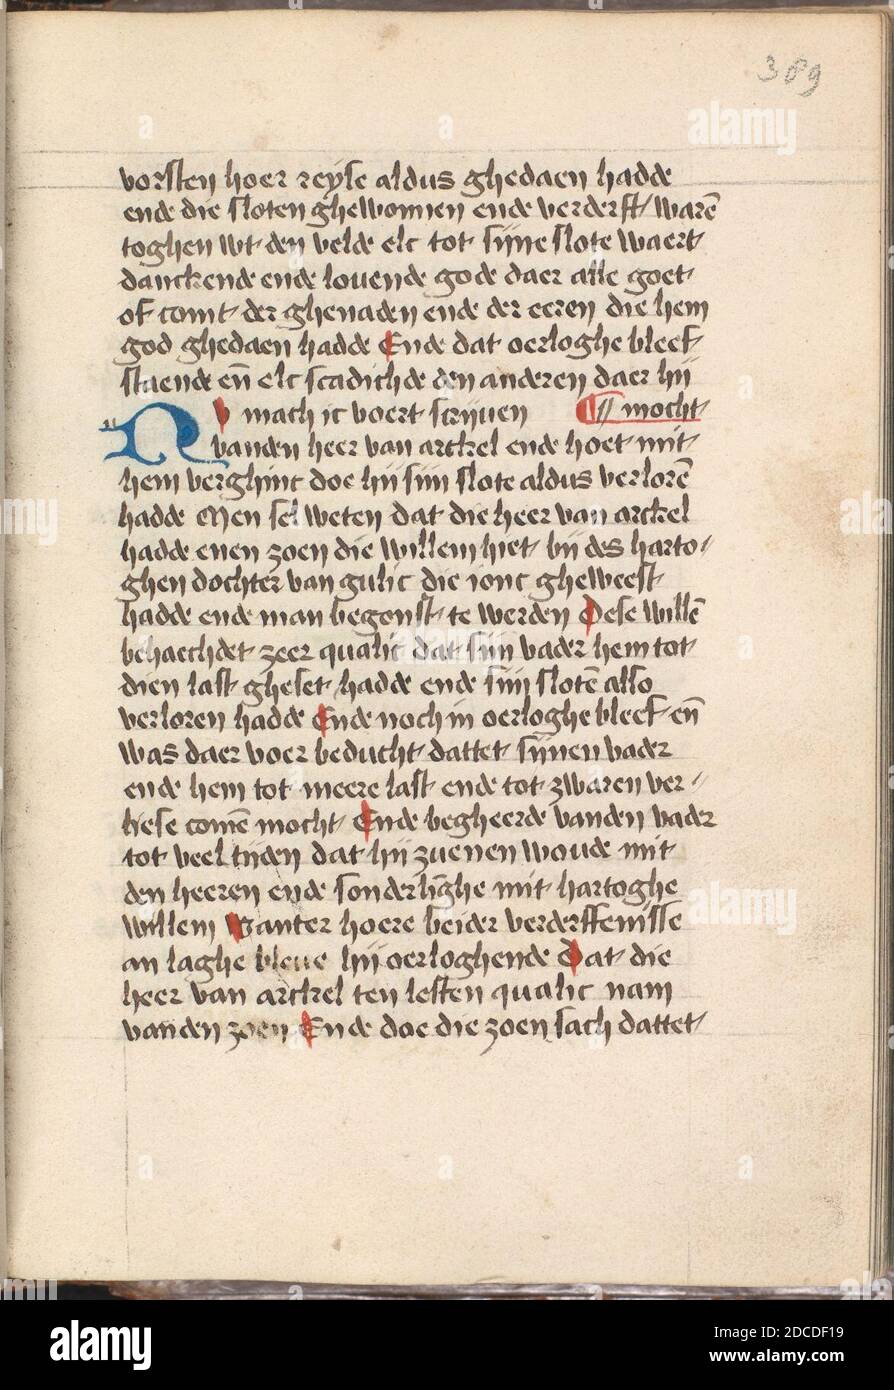 389
vorsten hoer reyse aldus ghedaen hadde
ende die sloten ghewonnen ende verderft warē
toghen wt den velde elc tot sijne slote waert
danckende ende lovende gode daer alle goet
of comt der ghenaden ende der eeren die hem
god ghedaen hadde Ende dat oerloghe bleef
staende eñ elc scadichde den anderen daer hij
mocht
Nv mach ic voert scrijven
vanden heer van arckel ende hoet mit
hem verghinc doe hij sijn slote aldus verlorē
hadde Men sel weten dat die heer van arckel
hadde enen zoen die willem hiet bij des harto/
ghen dochter van gulic die ionc gheweest
hadde ende man begonst te werden Dese willē
behaechdet zeer qualic dat sijn vader hem tot
dien last gheset hadde ende sijn slotē also
verloren hadde Ende noch in oerloghe bleef eñ
was daer voer beducht dattet sijnen vader
ende hem tot meere last ende tot zwaren ver/
liese comē mocht Ende begheerde vanden vader
tot veel tijden dat hij zuenen woude mit
den heeren ende sonderlīghe mit hartoghe
willem Wanter hoere beider verderffenisse
an laghe bleve hij oerloghende Dat die
heer van arckel ten lesten qualic nam
vanden zoen Ende doe die zoen sach dattet
alamy
Image ID: 2DCDF19
www.alamy.com